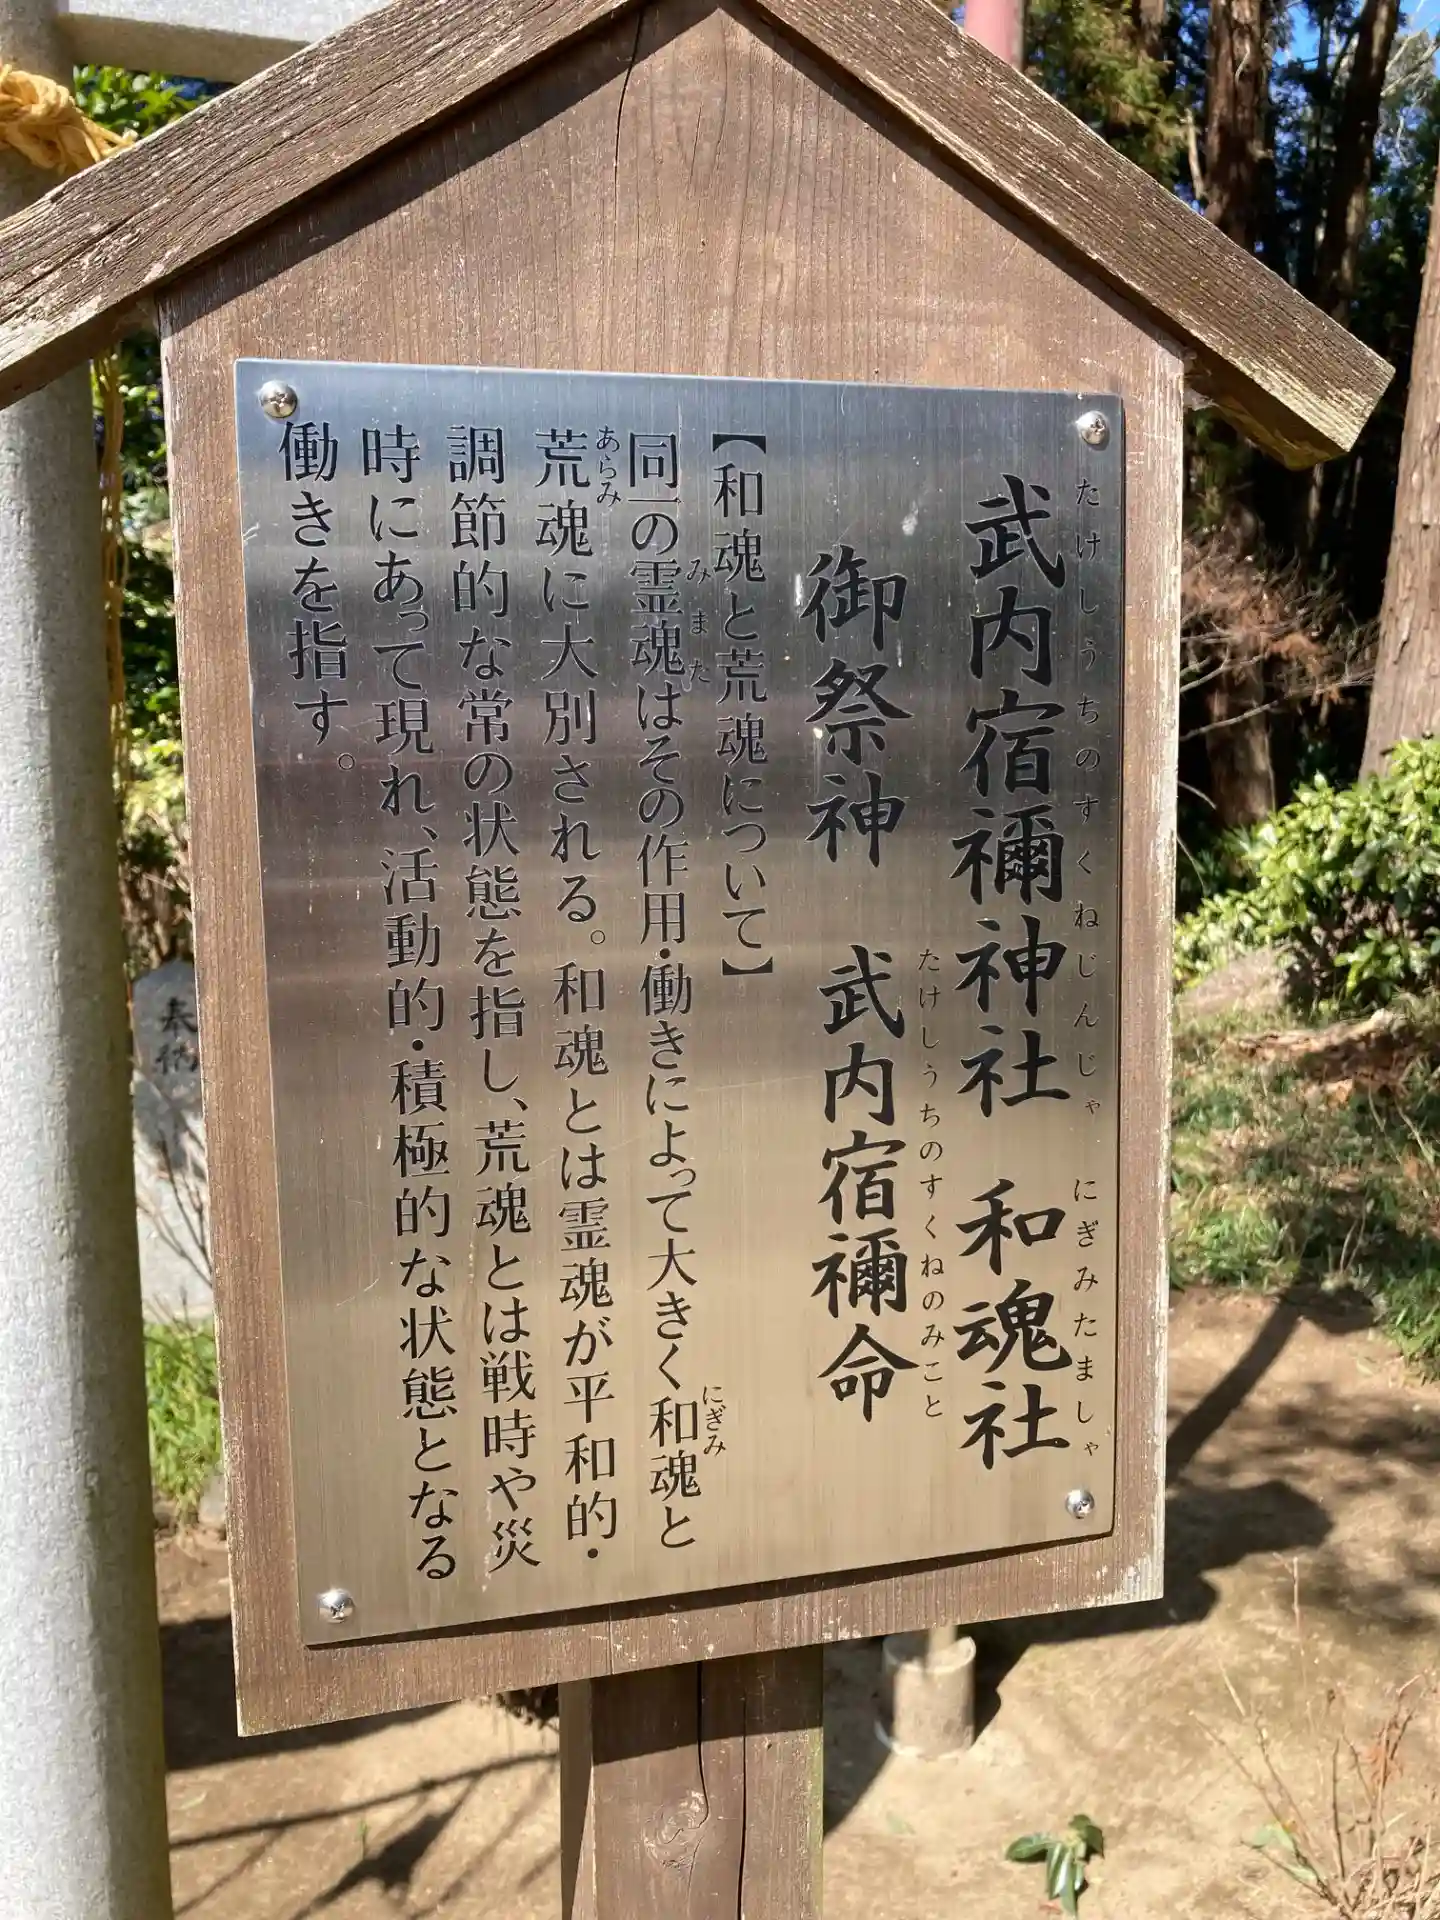 武内宿禰神社 和魂社
たけしうちのすくねじんじゃ にぎみたましゃ
御祭神 武内宿禰命
たけしうちのすくねのみこと
【和魂と荒魂について】
同一の霊魂はその作用・働きによって大きく和魂と
みまた
にぎみ
荒魂に大別される。和魂とは霊魂が平和的・
あらみ
調節的な常の状態を指し、荒魂とは戦時や災
時にあって現れ、活動的・積極的な状態となる
働きを指す。
奉納